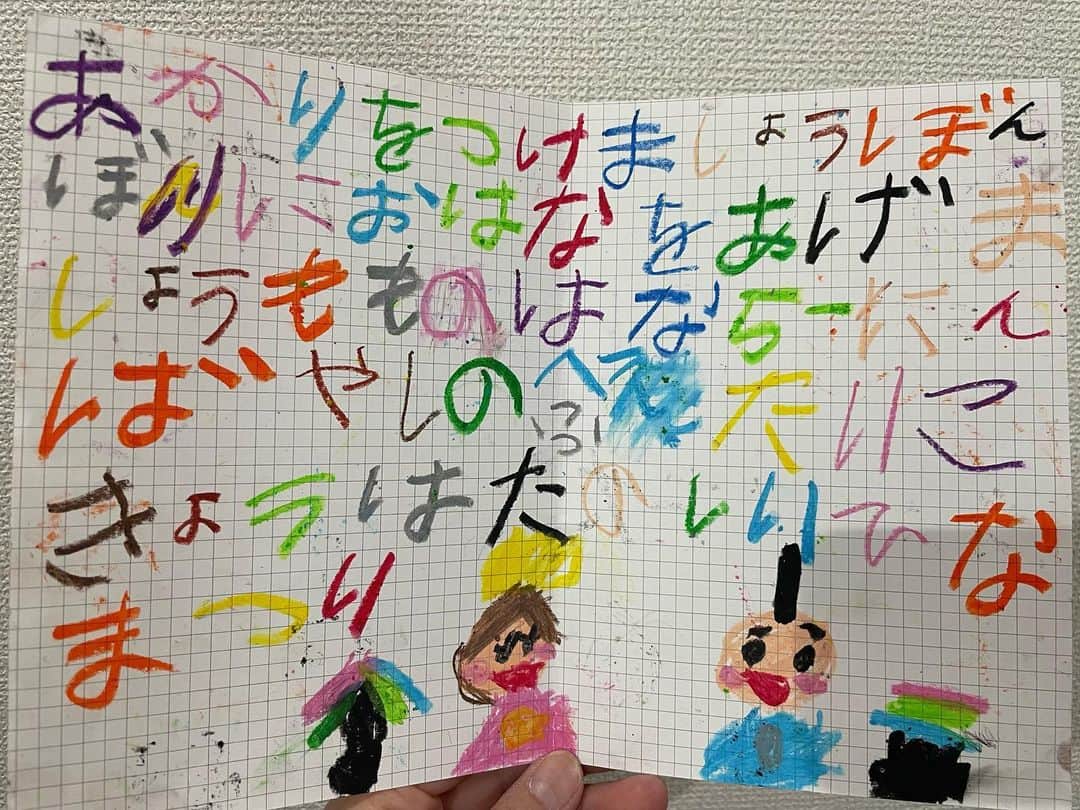 あかりをつけましょうぼん
ぼりにおはなをあげま
しょうももものはな5にん
ばやしのふえたいこ
きょうはたのしいひな
まつり